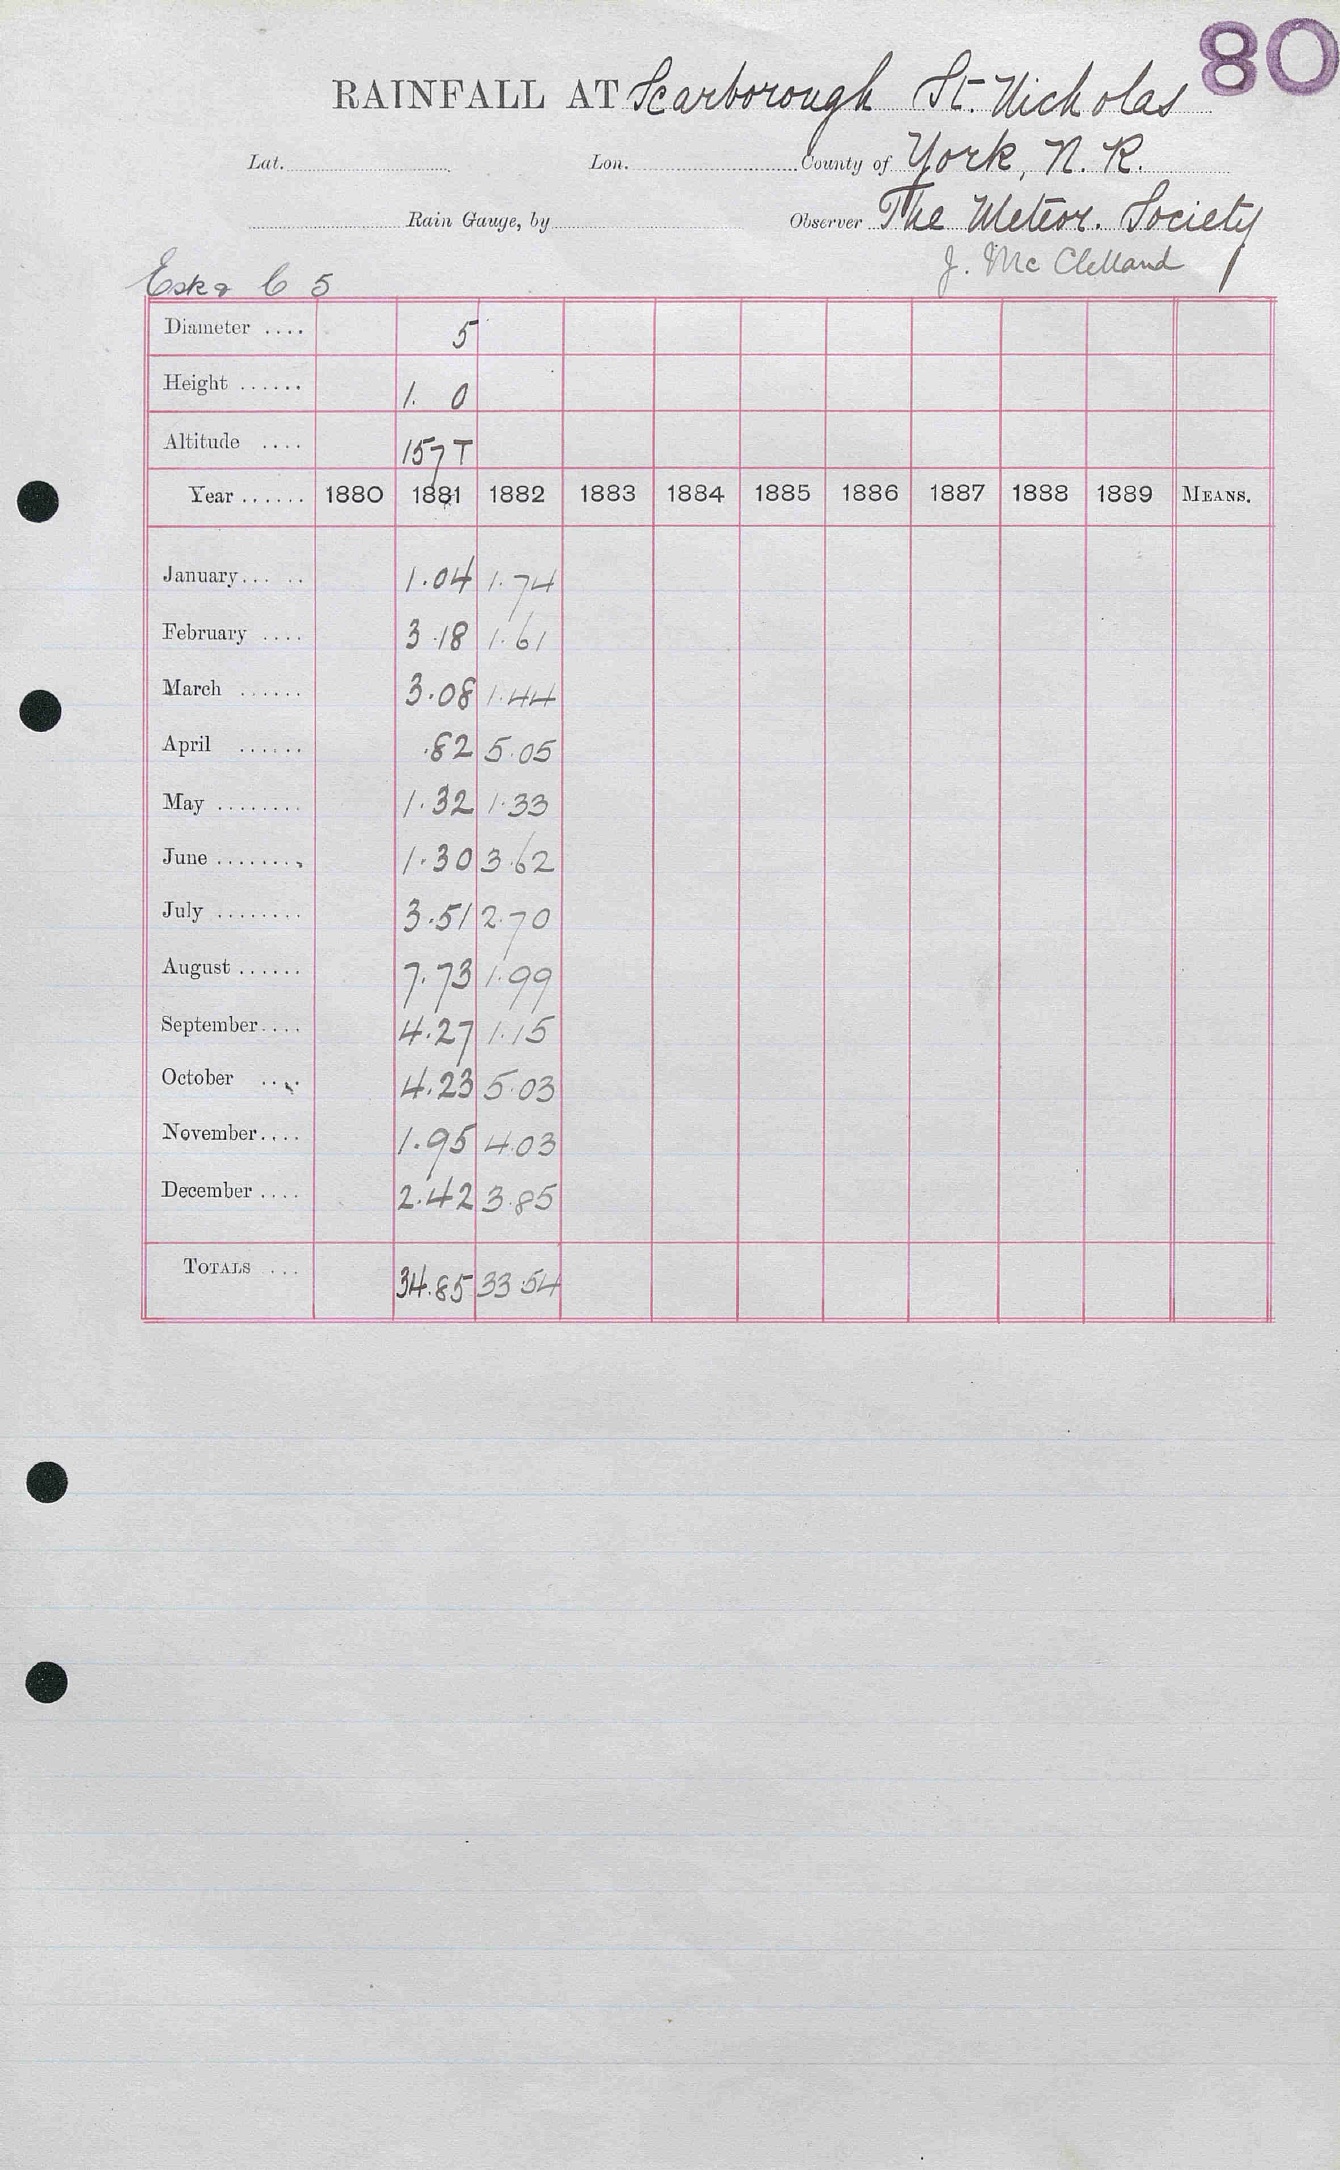 80
RAINFALL AT Scarborough St. Nicholas
Lat. Lon. County of York, N. R.
Rain Gauge, by Observer The Meteor. Society
J. McClelland
C 5
Diameter .... 5
Height ...... 1. 0
Altitude .... 157 T
Year ...... 1880 1881 1882 1883 1884 1885 1886 1887 1888 1889 MEANS.
January... .. 1.04 1.74
February .... 3.18 1.61
March ...... 3.08 1.44
April ...... .82 5.05
May ........ 1.32 1.33
June ........ 1.30 3.62
July ........ 3.51 2.70
August ...... 7.73 1.99
September.... 4.27 1.15
October .... 4.23 5.03
November.... 1.95 4.03
December .... 2.42 3.85
TOTALS ... 34.85 33.54